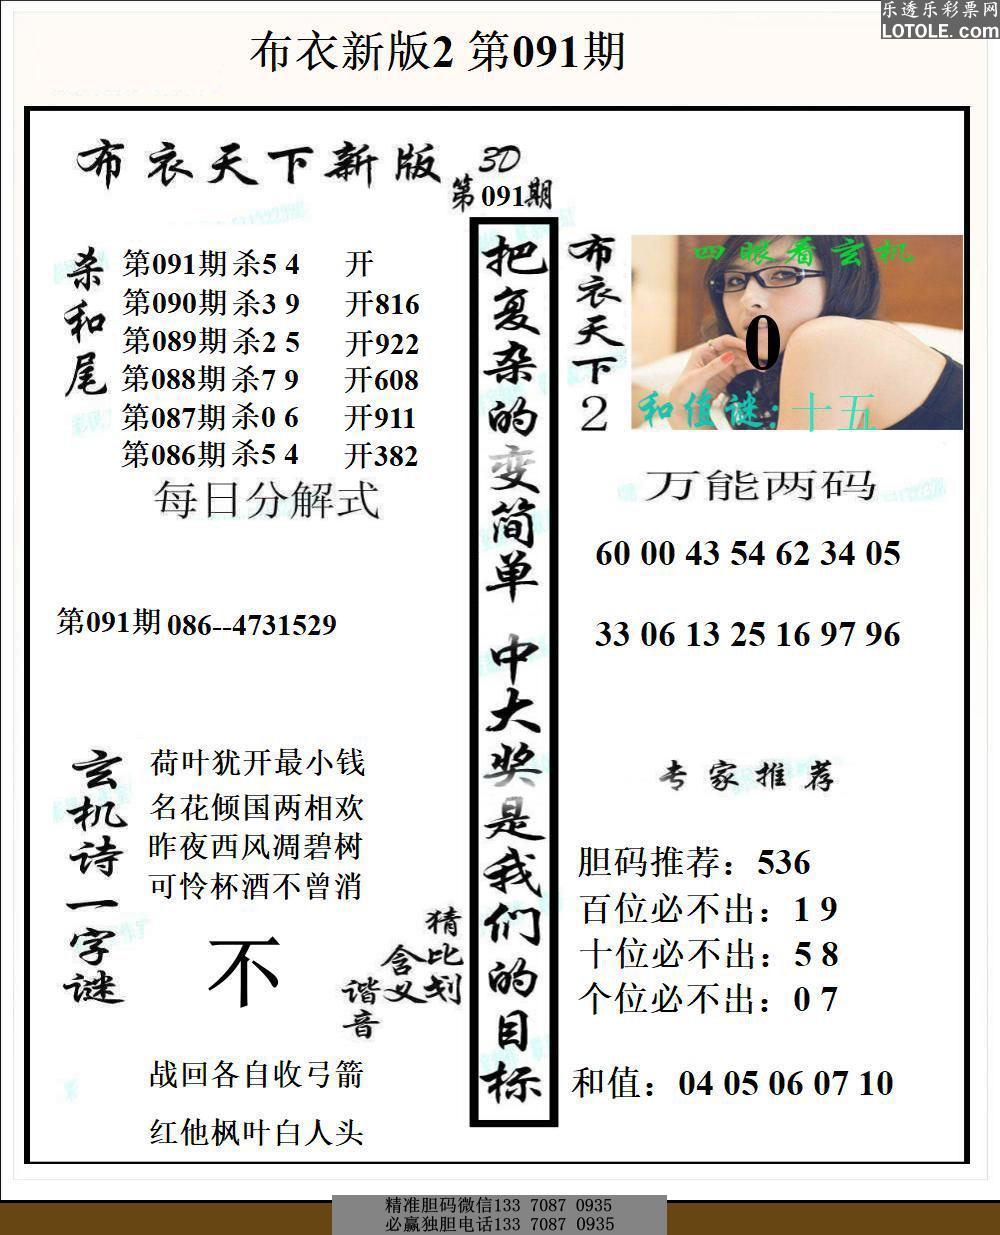 乐透乐彩票网
LOTOLE.com
布衣新版2 第091期
布衣天下新版
3D
第091期
杀和尾
第091期 杀5 4 开
第090期 杀3 9 开816
第089期 杀2 5 开922
第088期 杀7 9 开608
第087期 杀0 6 开911
第086期 杀5 4 开382
每日分解式
第091期 086--4731529
玄机诗一字谜
荷叶犹开最小钱
名花倾国两相欢
昨夜西风凋碧树
可怜杯酒不曾消
不
猜比划
含义
谐音
战回各自收弓箭
红他枫叶白人头
把复杂的变简单 中大奖是我们的目标
布衣天下2
四眼看玄机
0
和值谜:十五
万能两码
60 00 43 54 62 34 05
33 06 13 25 16 97 96
专家推荐
胆码推荐：536
百位必不出：1 9
十位必不出：5 8
个位必不出：0 7
和值：04 05 06 07 10
精准胆码微信133 7087 0935
必赢独胆电话133 7087 0935